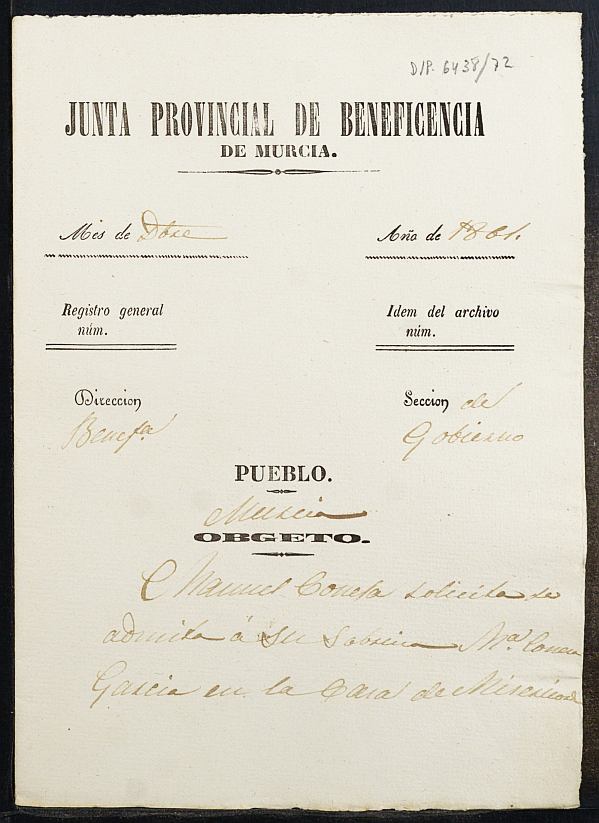 DIP. 6438/72
JUNTA PROVINCIAL DE BENEFICENCIA
DE MURCIA.
Mes de Dbre Año de 1861.
Registro general Idem del archivo
núm. núm.
Direccion Seccion de
Benefa Gobierno
PUEBLO.
Murcia
OBGETO.
Manuel Conesa solicita se
admita á su sobrina Ma. Conesa
Garcia en la Casa de Misericord